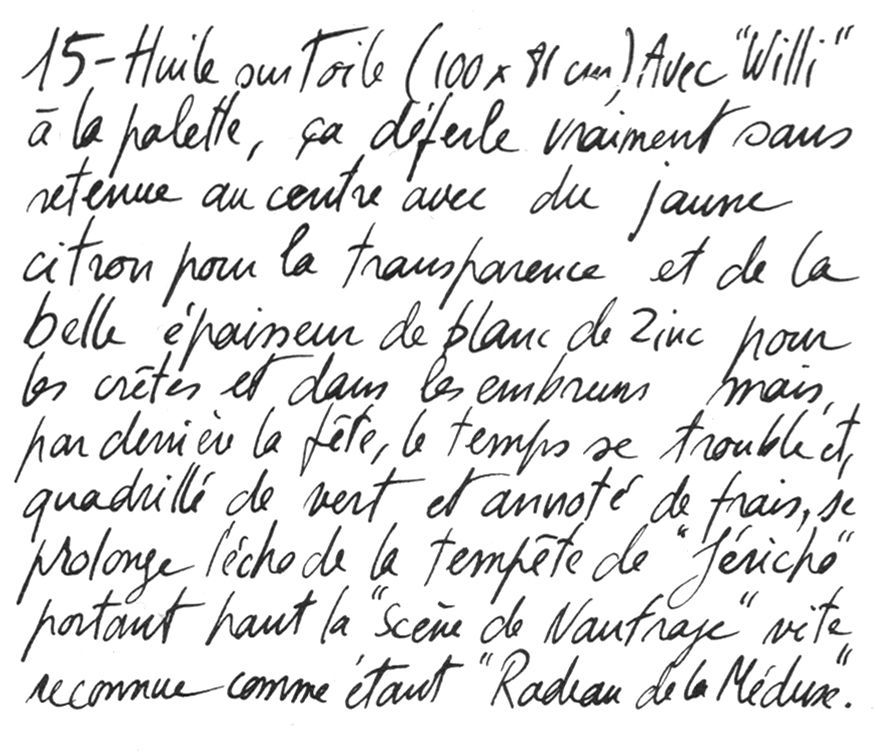 15-Huile sur Toile (100 x 81 cm) Avec "Willi"
à la palette, ça déferle vraiment sans
retenue au centre avec du jaune
citron pour la transparence et de la
belle épaisseur de blanc de Zinc pour
les crêtes et dans les embruns mais,
par derrière la fête, le temps se trouble et,
quadrillé de vert et annoté de frais, se
prolonge l'écho de la tempête de "Jéricho"
portant haut la "Scène de Naufrage" vite
reconnue comme étant "Radeau de la Méduse".